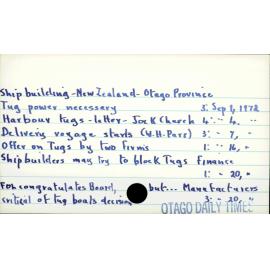 Shipbuilding - New Zealand - Otago Province
Tug power necessary 3: Sep 1, 1972
Harbour tugs - letter - Jock Church 4: " 4, "
Delivery voyage starts (W.H. Parr) 3: " 7, "
Offer on Tugs by two firms 1: " 16, "
Shipbuilders may try to block Tugs finance
1: " 20, "
For congratulates Board, but... Manufacturers
critical of tug boats decision 3: " 20, "
OTAGO DAILY TIMES